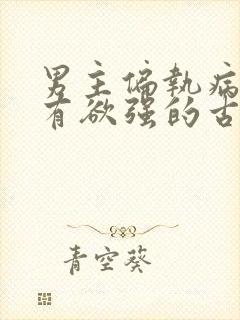 男主偏执病
有欲强的古
青空葵